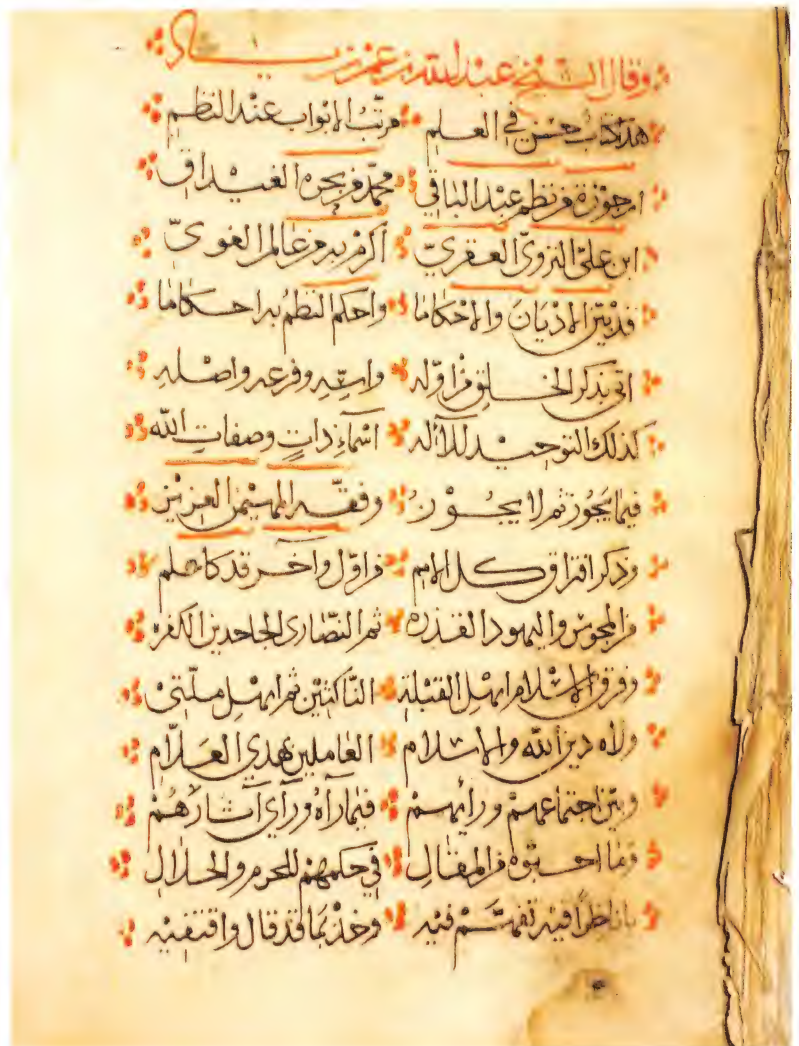 وقال الشيخ عبد الله بن عمر بن زياد
هذا كتاب حسن في العلم مرتب الابواب عند النظم
ارجوزة من نظم عبد الباقي محمد من بحره الغيداق
ابن علي النزوي العقري اكرم به من عالم لغوي
قد بين الاديان والاحكاما واحكم النظم به احكاما
اتى بذكر الخلق من اوله واسه وفرعه واصله
كذلك التوحيد للاله اسماء ذات وصفات الله
فيما يجوز ثم لا يجوز وفقه المهيمن العزيز
وذكر افتراق كل الامم من اول واخر قد كان
من المجوس واليهود القذره ثم النصارى الجاحدين الكفره
وفرق الاسلام اهل القبلة الناكثين ثم اهل ملتي
ولاه دين الله والاسلام العاملين بهدي العلام
وبين اجتماعهم ورايهم فيما رآه ورأى آثارهم
وما من المقال في حكمهم للحرم والحلال
يا ناظرا فيه تفهم فيه وخذ بما قد قال واقتفيه